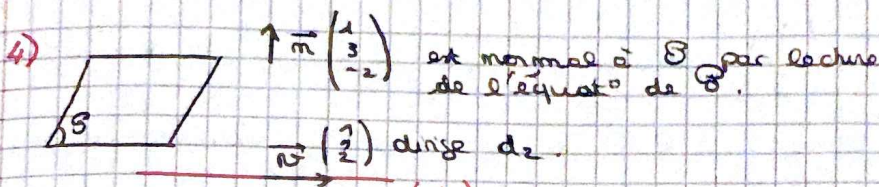 4) $\vec{n} \begin{pmatrix} 1 \\ 3 \\ -2 \end{pmatrix}$ est normal à P par lecture
de l'équat° de P.
P
$\vec{v} \begin{pmatrix} 1 \\ 1 \\ 2 \end{pmatrix}$ dirige d₂.